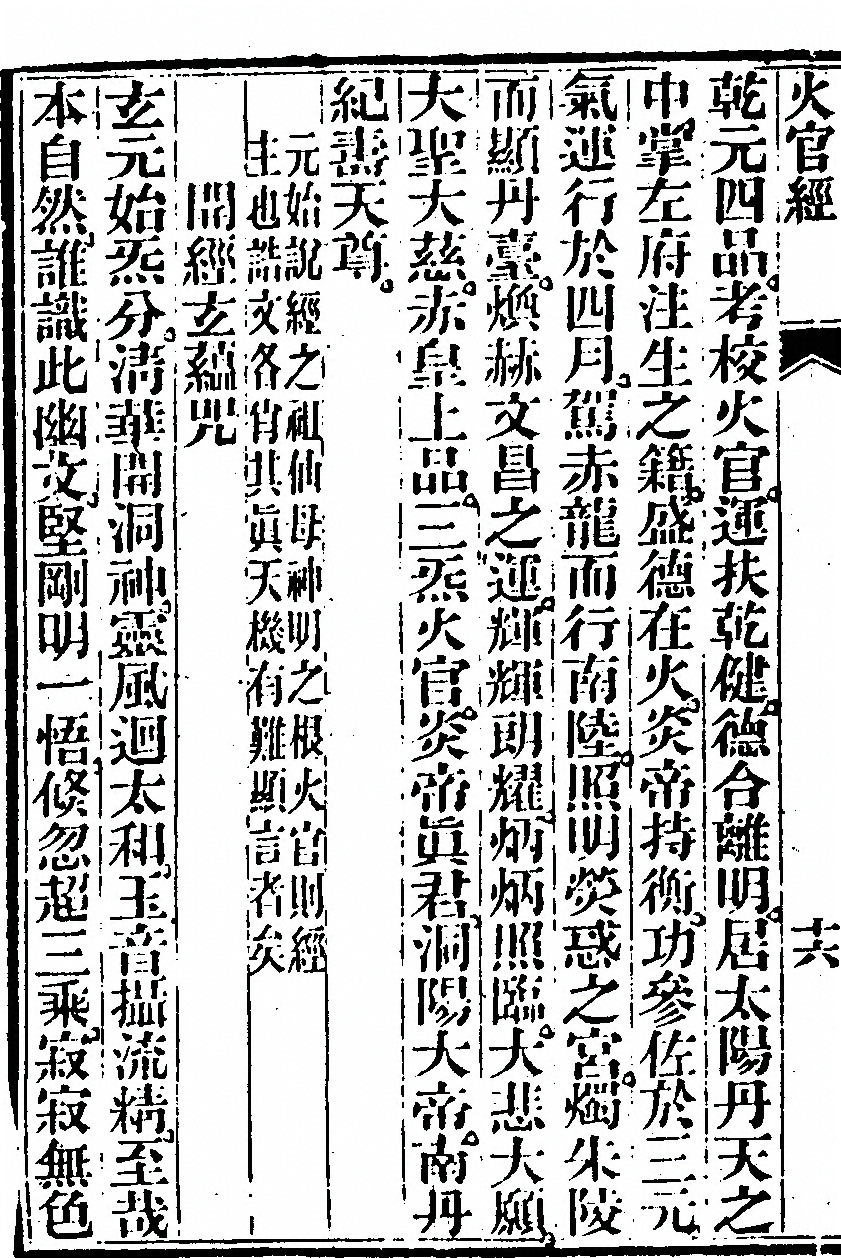 火官經
十六
乾元四品。考校火官。運扶乾健。德合離明。居太陽丹天之
中。掌左府注生之籍。盛德在火。炎帝持衡。功參佐於三元
氣運行於四月。駕赤龍而行南陸。照明熒惑之宮。燭朱陵
而顯丹臺。煥赫文昌之運。輝輝朗耀。炳炳照臨。大悲大願。
大聖大慈。赤皇上品。三炁火官。炎帝眞君。洞陽大帝。南丹
紀壽天尊。
元始說經之祖仙母神明之根火官則經
主也誥文各省其眞天機有難顯言者矣
開經玄蘊咒
玄元始炁分。淸華開洞神。靈風迴太和。玉音攝流精。至哉
本自然。誰識此幽文。堅剛明一悟。倐忽超三乘。寂寂無色